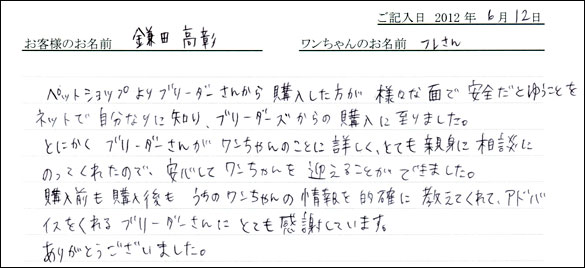 ご記入日 2012年 6月 12日
お客様のお名前 鎌田 高彰 ワンちゃんのお名前 フレさん
ペットショップよりブリーダーさんから購入した方が様々な面で安全だとゆうことを
ネットで自分なりに知り、ブリーダーズからの購入に至りました。
とにかくブリーダーさんがワンちゃんのことに詳しく、とても親身に相談に
のってくれたので、安心してワンちゃんを迎えることができました。
購入前も購入後もうちのワンちゃんの情報を的確に教えてくれて、アドバ
イスをくれるブリーダーさんにとても感謝しています。
ありがとうございました。